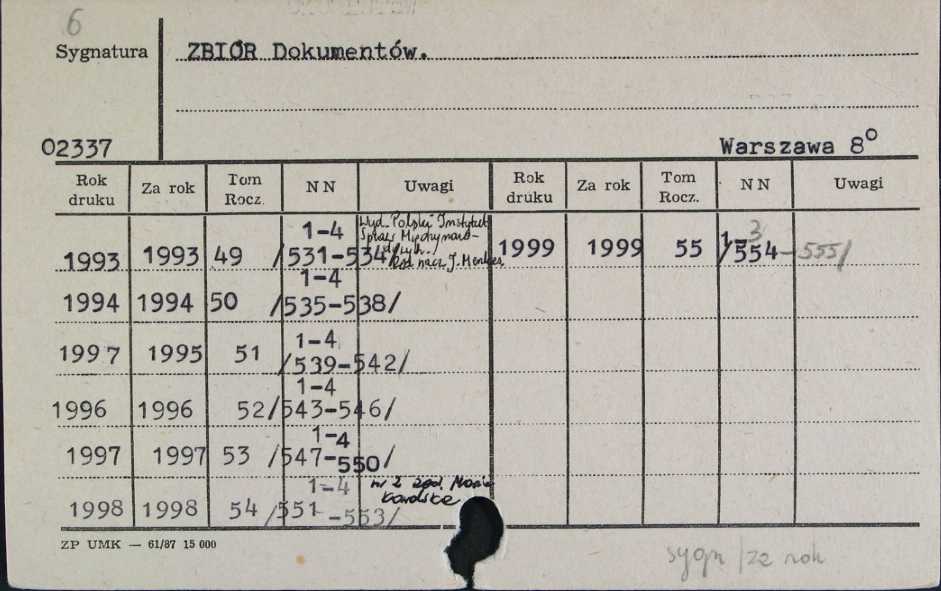 6
Sygnatura ZBIÓR Dokumentów.
02337 Warszawa 8°
Rok druku Za rok Tom Rocz. NN Uwagi Rok druku Za rok Tom Rocz. NN Uwagi
1993 1993 49 1-4 /531-534/ Wyd. Polski Instytut Spraw Międzynaro- dowych. Red. nacz. J. 1999 1999 55 1-3 /554-555/
1994 1994 50 1-4 /535-538/
1997 1995 51 1-4 /539-542/
1996 1996 52 1-4 /543-546/
1997 1997 53 1-4 /547-550/
1998 1998 54 1-4 /551-553/ nr 2
ZP UMK — 61/87 15 000
sygn /za rok